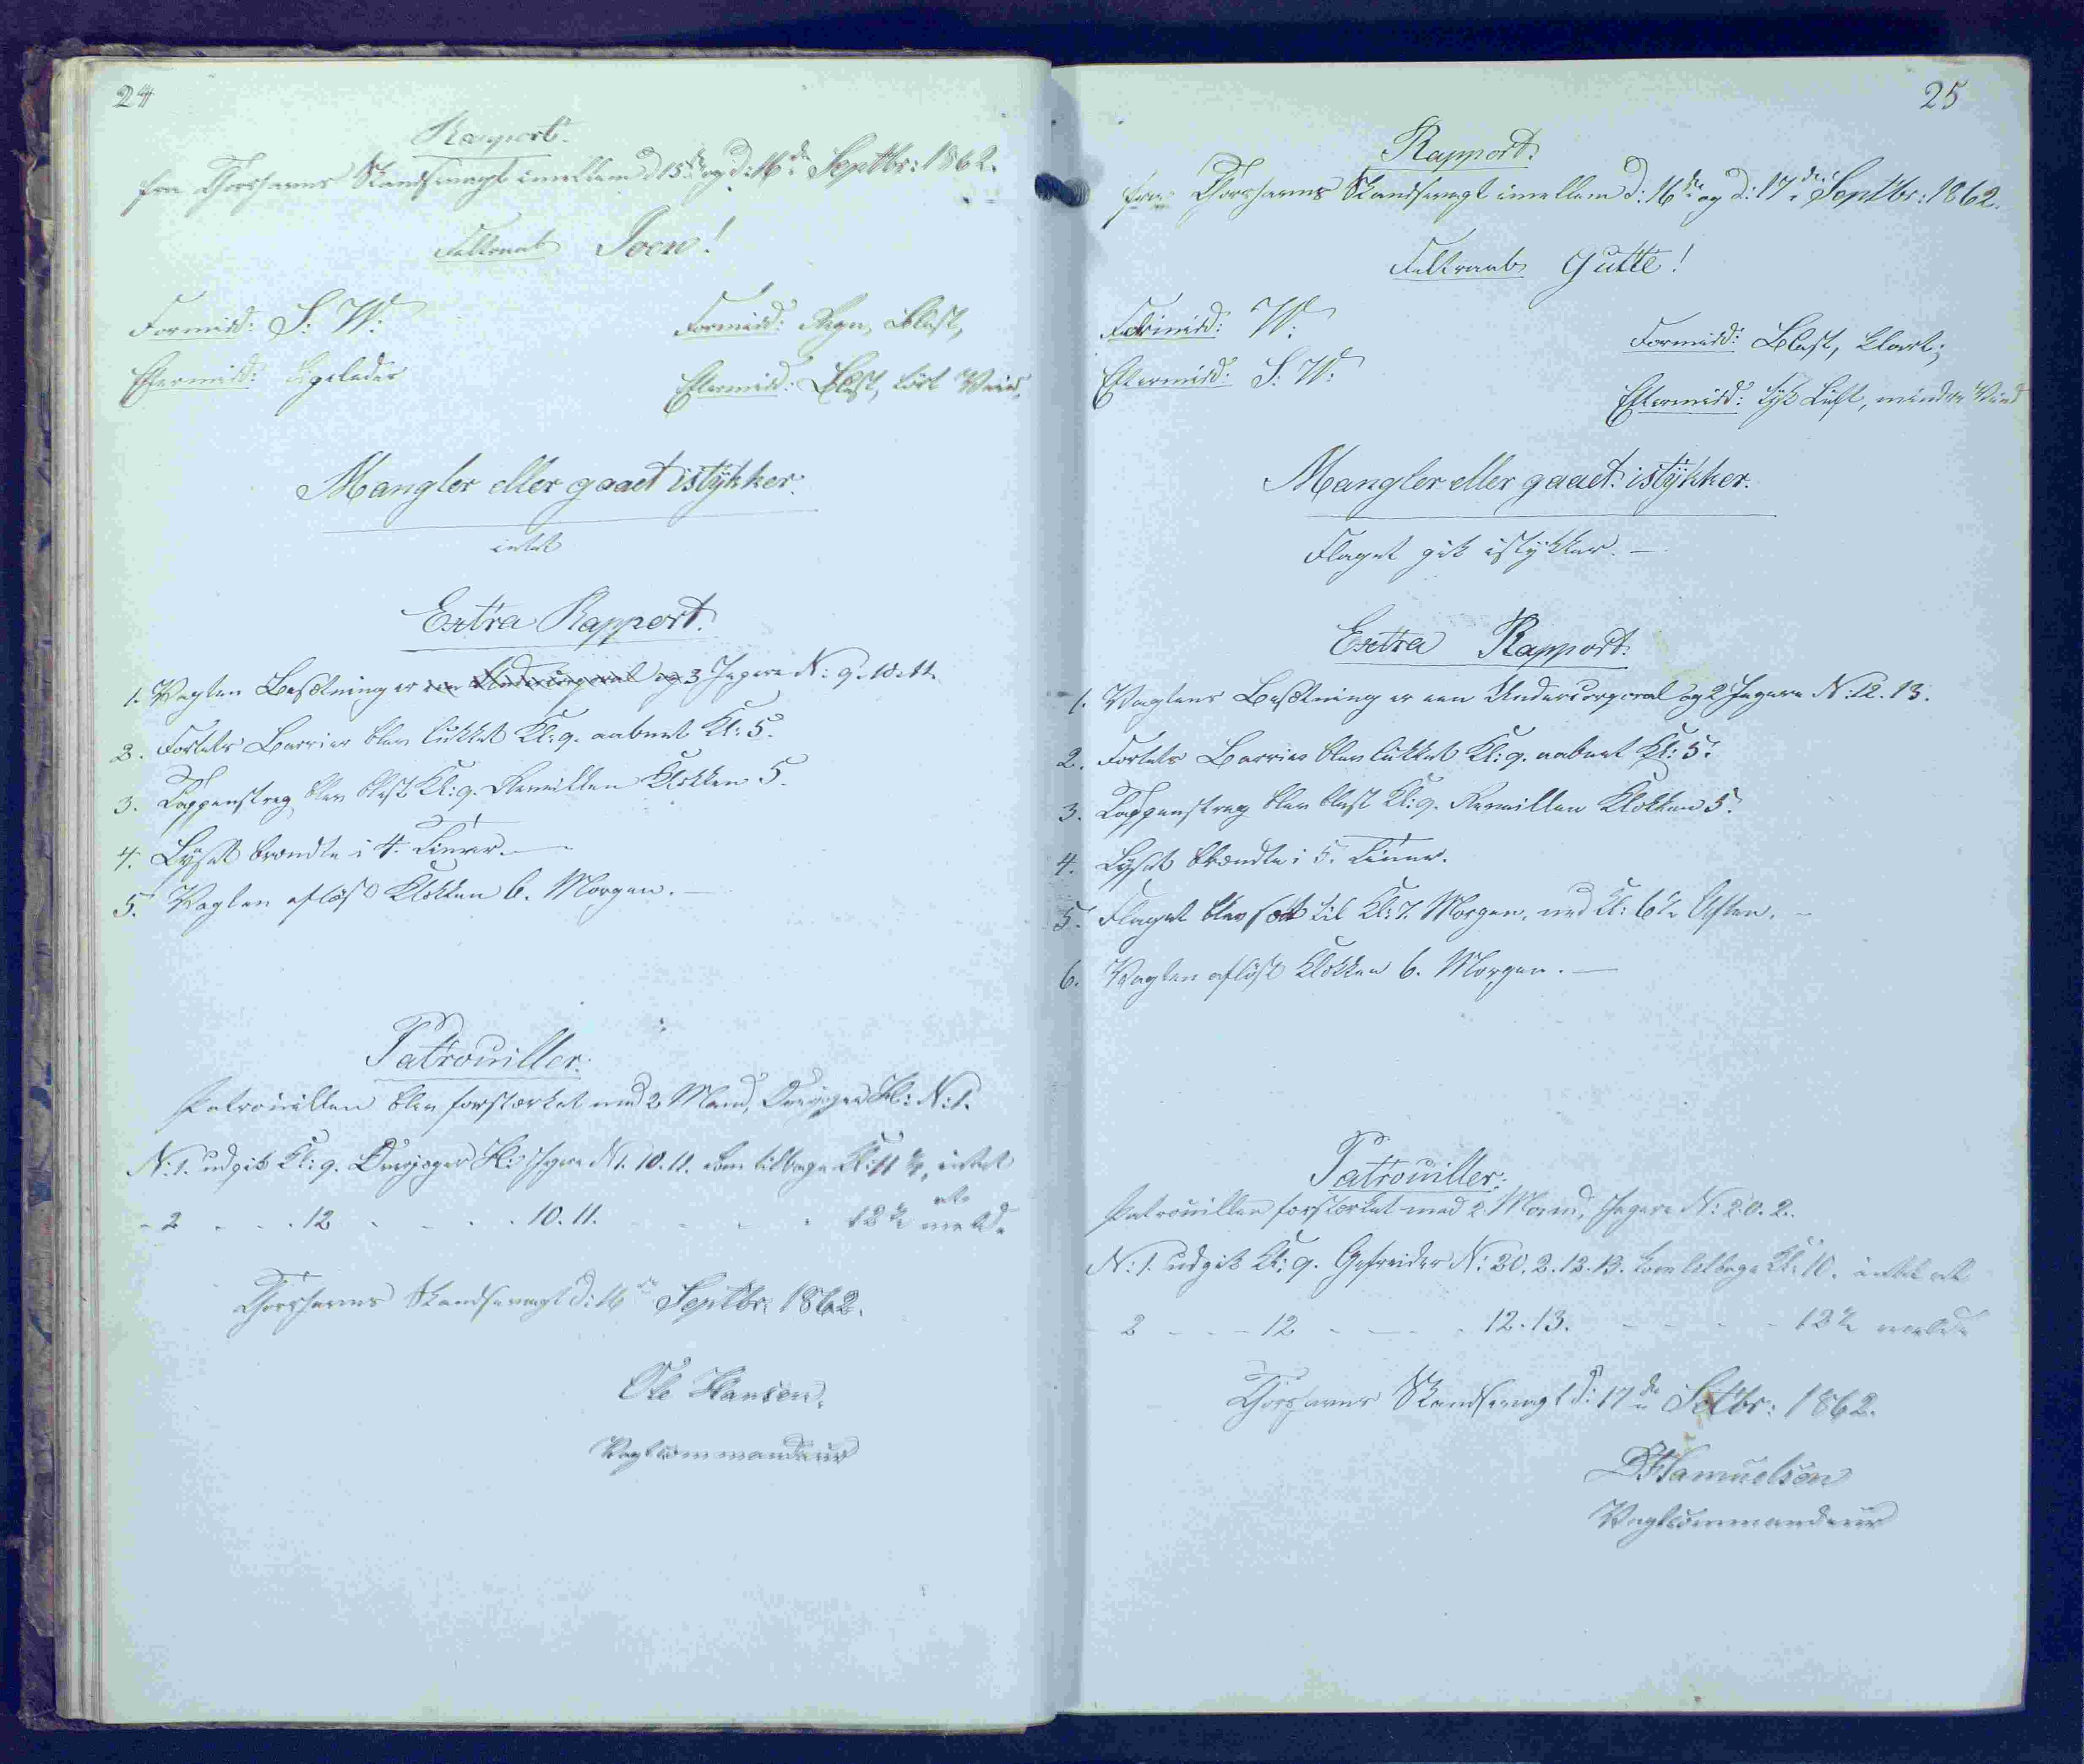 24
Rapport.
fra Thorshavns Skandsevagt imellem d: 15de og d: 16de Septbr: 1862.
Feltraab
Formidd: S: W:
Formidd: Regn, Blæst,
Eftermidd: Ligeledes
Eftermidd: Blæst, tört Veir,
Mangler eller gaaet istÿkker.
intet
Extra Rapport.
1. Vagtens Besætning er en Undercorporal og 3 Jægere N: 9. 10. 11.
2. Fortets Barrier blev lukket Kl: 9. aabnet Kl: 5.
3. Tappenstreg blev blæst Kl: 9. Reveillen Klokken 5.
4. Lyset brændte i 4. Timer.
5. Vagten aflöst Klokken 6. Morgen.
Patrouiller.
Patrouillen blev forstærket med 2 Mand, N: 1.
N: 1. udgik Kl: 9. 10. 11. kom tilbage Kl: 11 ½, intet
at
- 2 - - . 12 - - - . 10. 11. - - - . 12 ½ melde
Thorshavns Skandsevagt d: 16de Septbr: 1862.
Ole Hansen.
Vagtcommandeur
25
Rapport.
fra Thorshavns Skandsevagt imellem d: 16de og d: 17de Septbr: 1862.
Feltraab Gutte!
Formidd: W:
Formidd: Blæst, klart,
Eftermidd: S: W:
Eftermidd: tyk Luft, mindre Vind
Mangler eller gaaet istÿkker.
Flaget gik istykker.
Extra Rapport.
1. Vagtens Besætning er een Undercorporal og 2 Jægere N: 12. 13.
2. Fortets Barrier blev lukket Kl: 9. aabnet Kl: 5.
3. Tappenstreg blev blæst Kl: 9. Reveillen Klokken 5.
4. Lyset brændte i 5. Timer.
5. Flaget blev sat til Kl: 7. Morgen, ned Kl: 6 ½ Aften.
6. Vagten aflöst Klokken 6. Morgen.
Patrouiller.
Patrouillen forstærket med 2. Mand, Jægere N: 20. 2.
N: 1. udgik Kl: 9. Gefreider N: 20. 2. 12. 13. kom tilbage Kl: 10. intet at
2 - - - 12 - - - . 12. 13. - - - - 12 ½ melde
Thorshavns Skandsevagt d: 17de Setbr: 1862.
Samuelsen
Vagtcommandeur